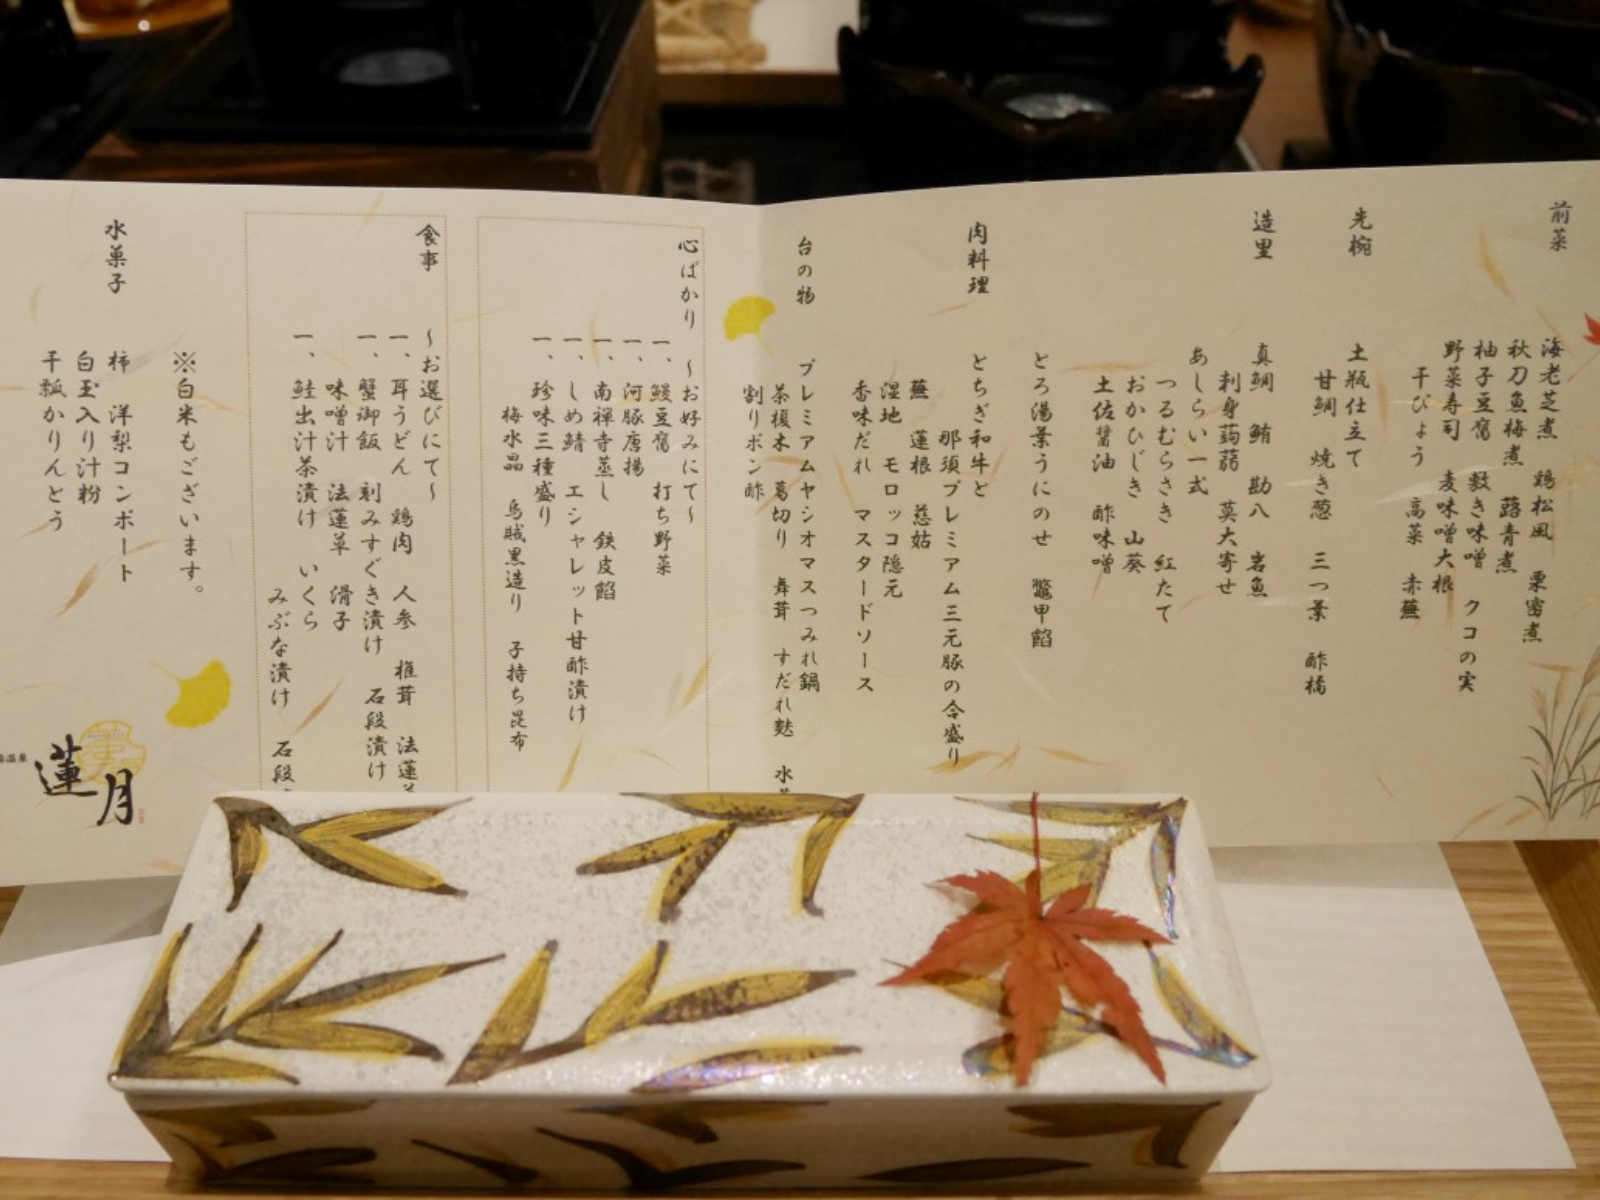 前菜
海老芝煮　鶏松風　栗蜜煮
秋刀魚梅煮　蕗青煮
柚子豆腐　敷き味噌　クコの実
野菜寿司　麦味噌大根
干ぴょう　高菜　赤蕪
先椀
土瓶仕立て
甘鯛　焼き葱　三つ葉　酢橘
造里
真鯛　鮪　勘八　岩魚
刺身蒟蒻　莫大寄せ
あしらい一式
つるむらさき　紅たて
おかひじき　山葵
土佐醤油　酢味噌
とろ湯葉うにのせ　鼈甲餡
肉料理
とちぎ和牛と
那須プレミアム三元豚の合盛り
蕪　蓮根　慈姑
湿地　モロッコ隠元
香味だれ　マスタードソース
台の物
プレミアムヤシオマスつみれ鍋
茶榎木　葛切り　舞茸　すだれ麩　水
割りポン酢
心ばかり　〜お好みにて〜
一、鰻豆腐　打ち野菜
一、河豚唐揚
一、南禅寺蒸し　鉄皮餡
一、しめ鯖　エシャレット甘酢漬け
一、珍味三種盛り
梅水晶　烏賊黒造り　子持ち昆布
食事　〜お選びにて〜
一、耳うどん　鶏肉　人参　椎茸　法蓮
一、蟹御飯　刻みすぐき漬け　石段漬け
味噌汁　法蓮草　滑子
一、鮭出汁茶漬け　いくら
みぶな漬け　石段
※白米もございます。
水菓子
柿　洋梨コンポート
白玉入り汁粉
干瓢かりんとう
温泉
蓮月